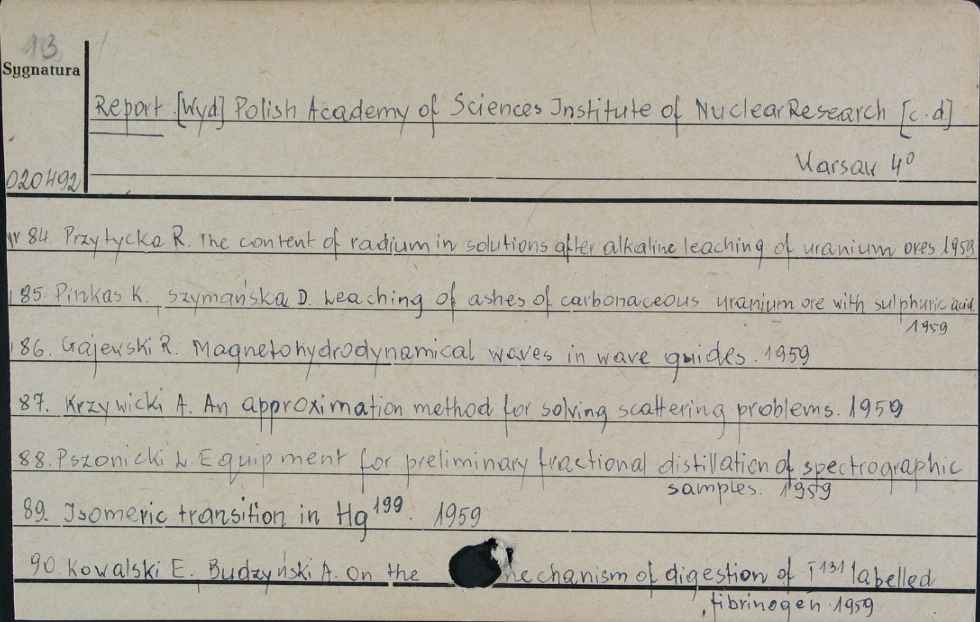 13
Sygnatura
Report [Wyd] Polish Academy of Sciences Institute of Nuclear Research [c.d]
Warsaw 4º
020492
nr 84. Przytycka R. The content of radium in solutions after alkaline leaching of uranium ores 1959
85. Pinkas K. Szymańska D. Leaching of ashes of carbonaceous uranium ore with sulphuric acid
1959
86. Gajewski R. Magnetohydrodynamical waves in wave guides. 1959
87. Krzywicki A. An approximation method for solving scattering problems. 1959
88. Pszonicki L. Equipment for preliminary fractional distillation of spectrographic
samples. 1959
89. Isomeric transition in Hg¹⁹⁹. 1959
90. Kowalski E. Budzyński A. On the mechanism of digestion of I¹³¹ labelled
fibrinogen 1959